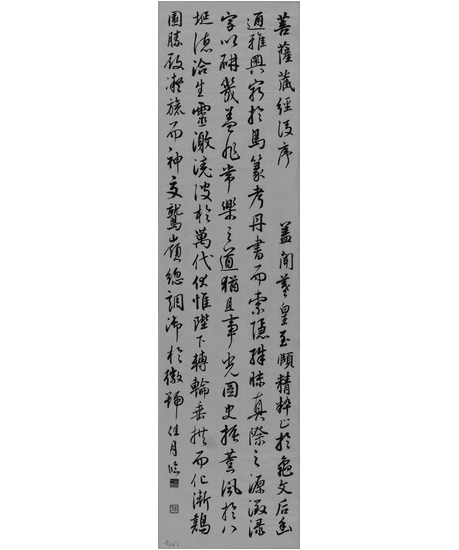 菩薩藏經後序 蓋聞羲皇至賾精粹止於龜文后幽
通雅奧窮於鳥篆考丹書而索隱殊昧真際之源徵綠
字以研幾蓋非常樂之道猶且事光圖史振薰風於八
埏德洽生靈激澆波於萬代伏惟陛下轉輪垂拱而化漸鷄
園勝殿凝旒而神交鷲嶺總調御於徽號 月臨